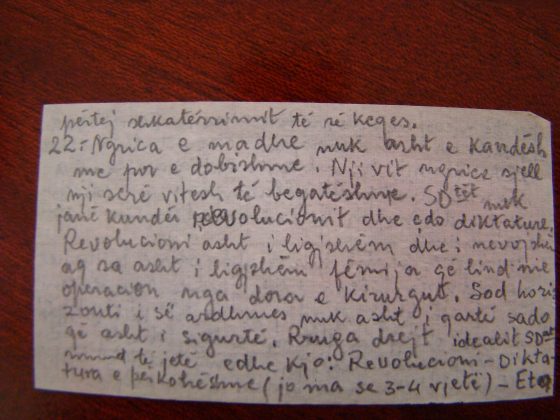 përtej shkatërrimit të së keqes.
22 = Ngrica e madhe nuk asht e kandësh
me por e dobishme. Nji vit ngrice sjell
nji serë vitesh të begatëshme. SD tët nuk
janë kundër revolucionit dhe çdo diktature.
Revolucioni asht i ligjshëm dhe i nevojshëm
aq sa asht i ligjshëm fëmija që lind me
operacion nga dora e Kirurgut. Sod hori
zonti i së ardhmes nuk asht i qartë sado
që asht i sigurtë. Rruga drejt idealit SD
mund të jetë edhe kjo: Revolucioni - Dikta-
tura e përkohëshme (jo ma se 3-4 vjetë) -